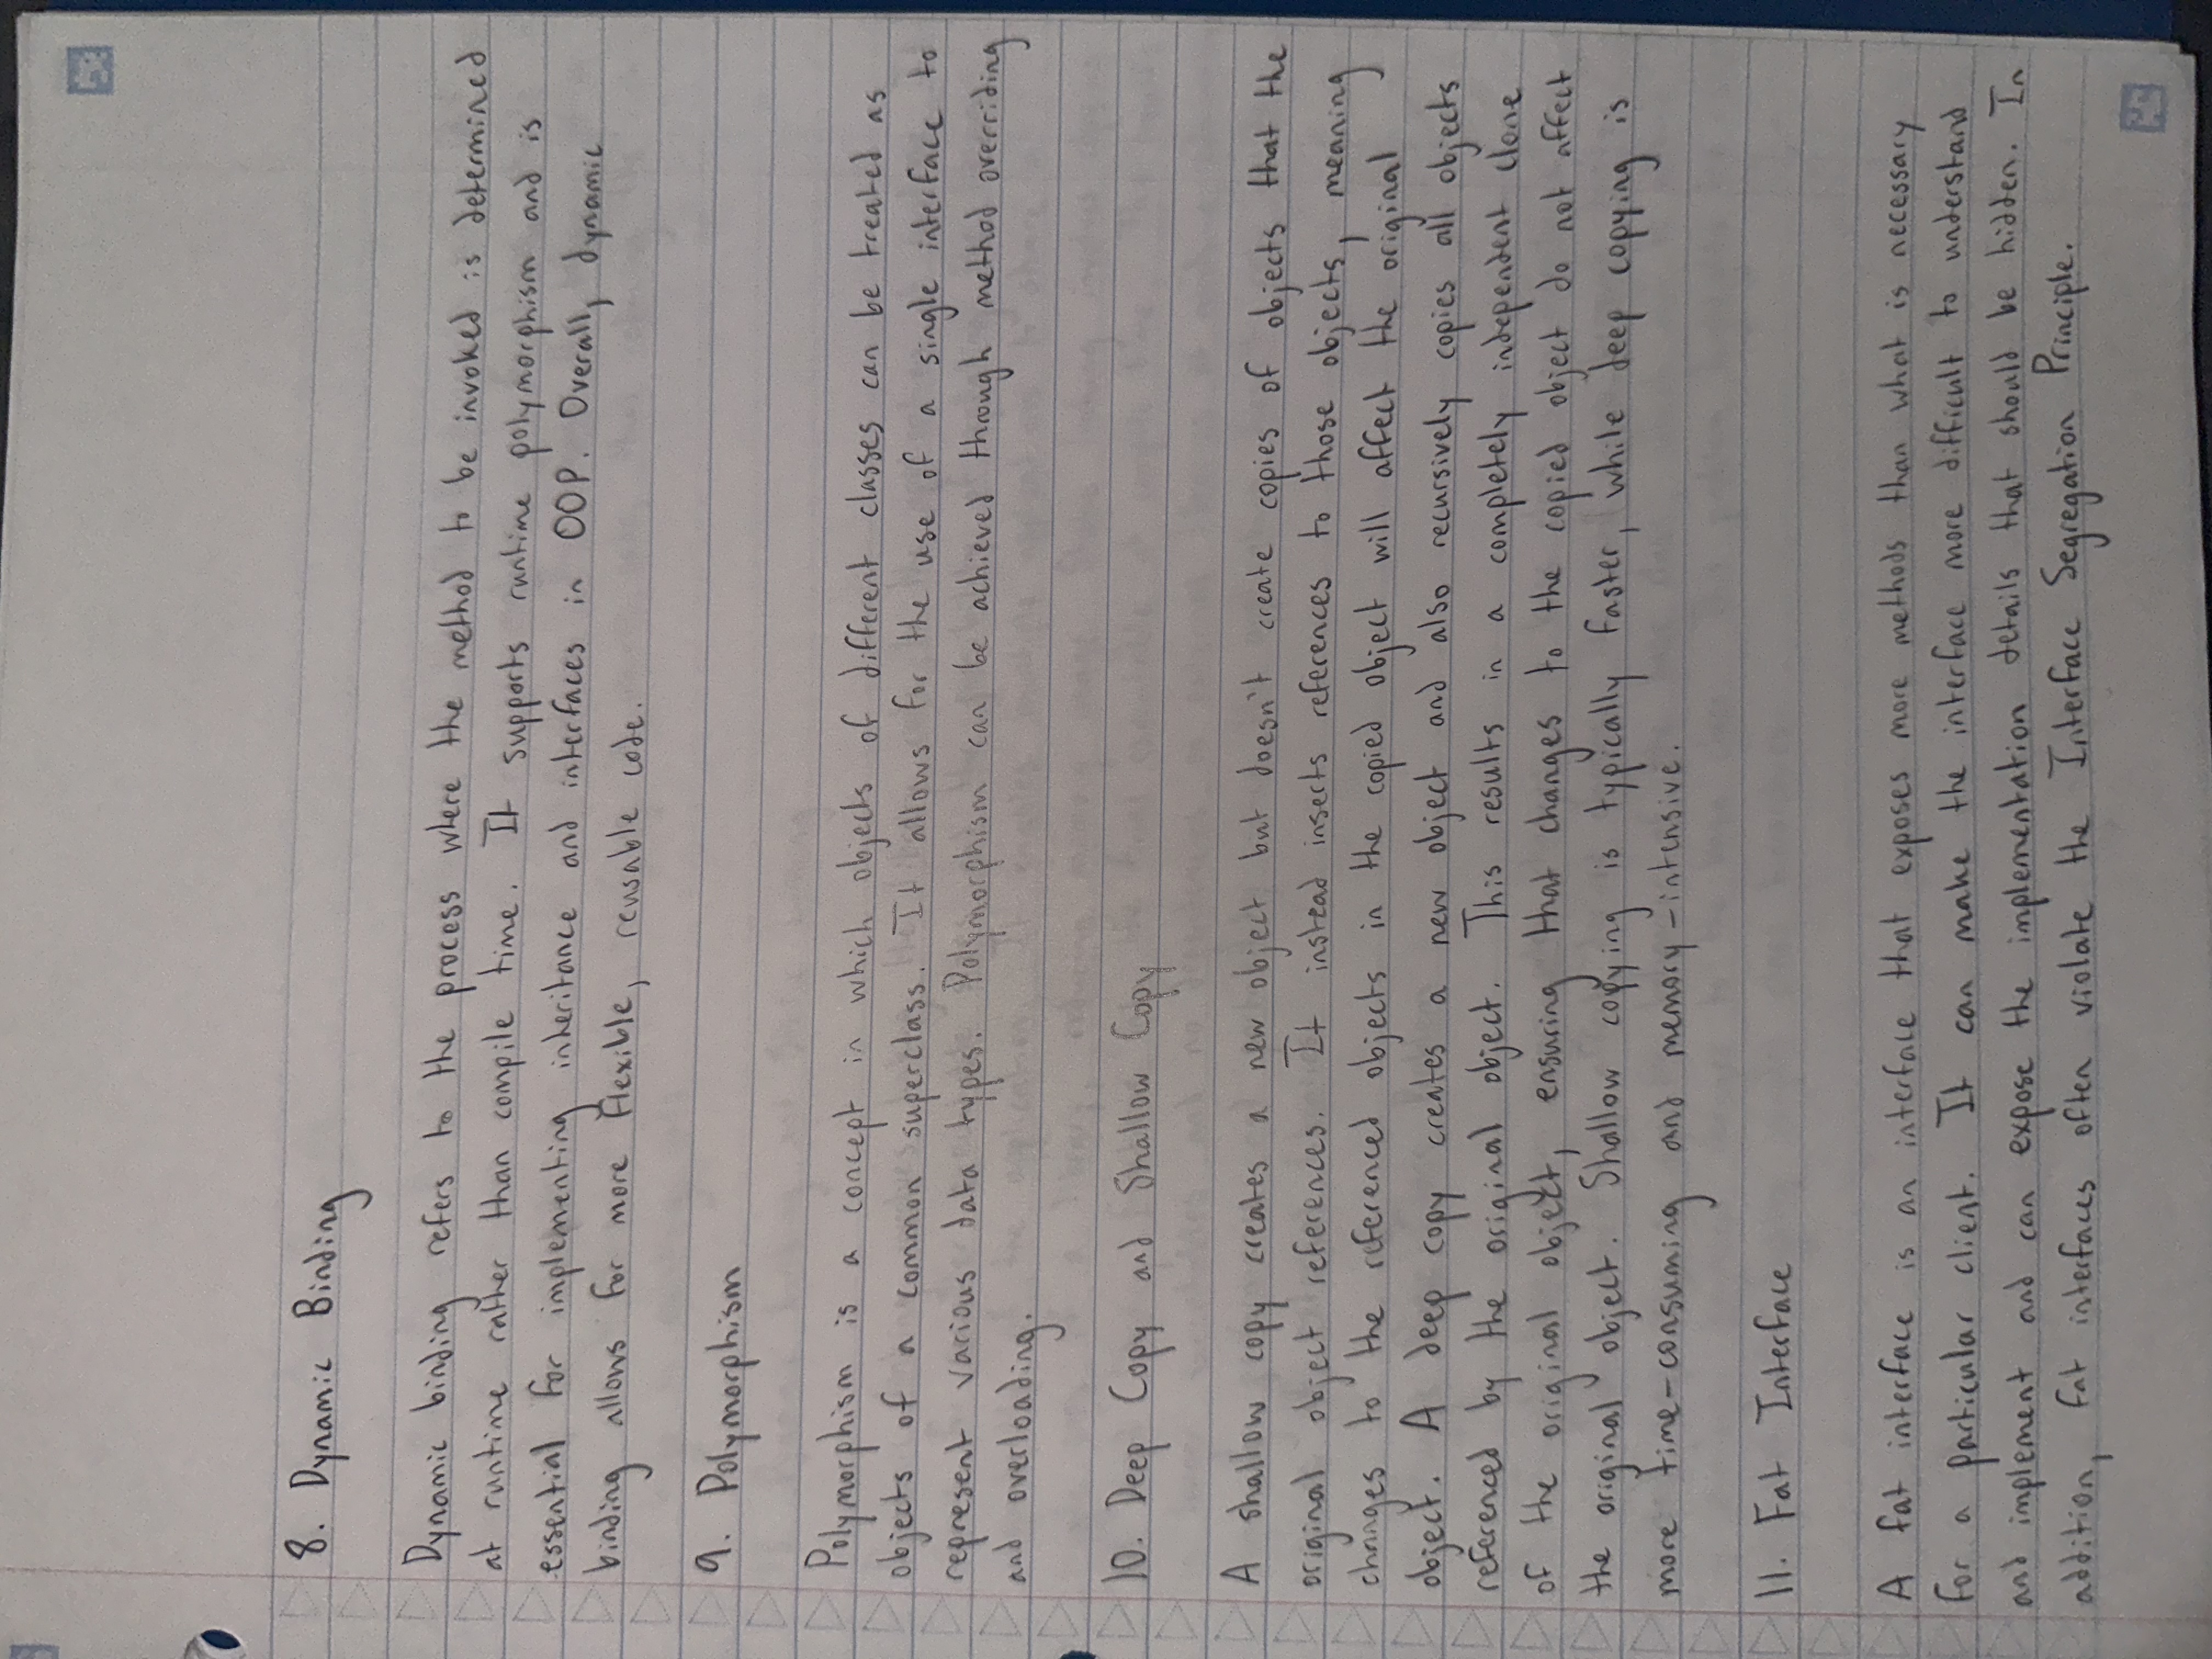 8. Dynamic Binding
Dynamic binding refers to the process where the method to be invoked is determined
at runtime rather than compile time. It supports runtime polymorphism and is
essential for implementing inheritance and interfaces in OOP. Overall, dynamic
binding allows for more flexible, reusable code.
9. Polymorphism
Polymorphism is a concept in which objects of different classes can be treated as
objects of a common superclass. It allows for the use of a single interface to
represent various data types. Polymorphism can be achieved through method overriding
and overloading.
10. Deep Copy and Shallow Copy
A shallow copy creates a new object but doesn't create copies of objects that the
original object references. It instead inserts references to those objects, meaning
changes to the referenced objects in the copied object will affect the original
object. A deep copy creates a new object and also recursively copies all objects
referenced by the original object. This results in a completely independent clone
of the original object, ensuring that changes to the copied object do not affect
the original object. Shallow copying is typically faster, while deep copying is
more time-consuming and memory-intensive.
11. Fat Interface
A fat interface is an interface that exposes more methods than what is necessary
for a particular client. It can make the interface more difficult to understand
and implement and can expose the implementation details that should be hidden. In
addition, fat interfaces often violate the Interface Segregation Principle.